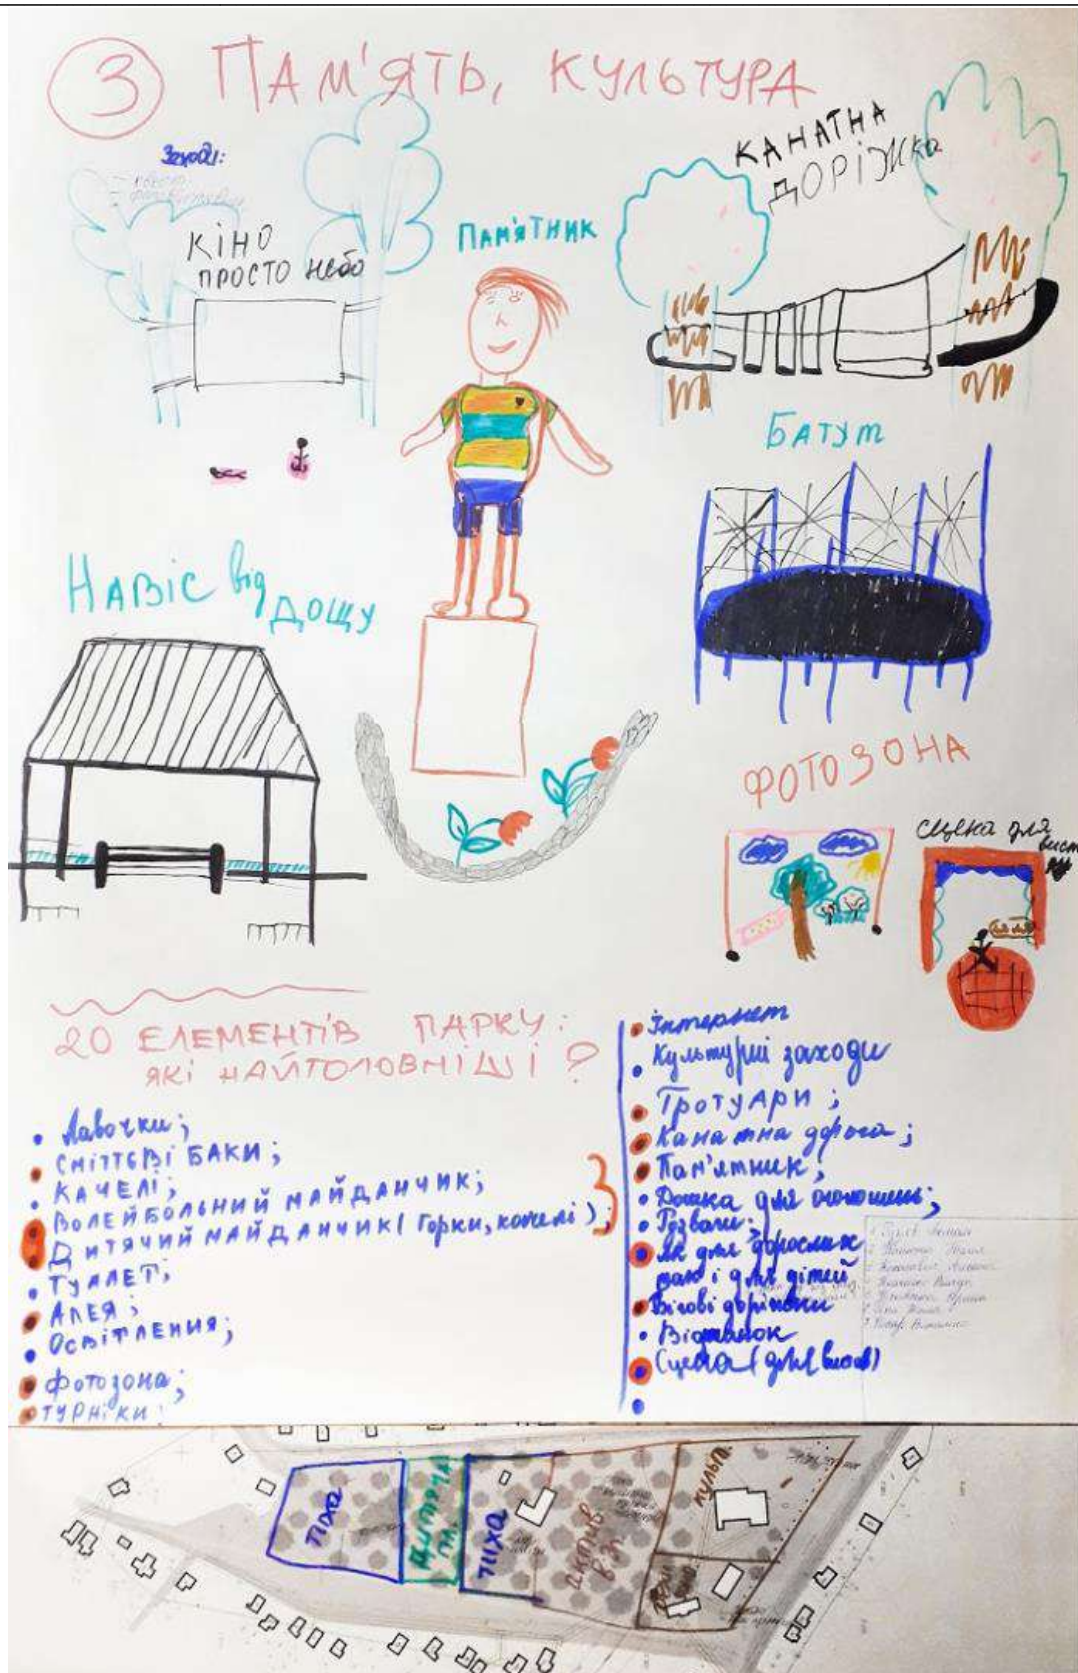 3 ПАМ'ЯТЬ, КУЛЬТУРА
Заходи:
КІНО
ПРОСТО небо
ПАМ'ЯТНИК
КАНАТНА
ДОРІЖКа
БАТУТ
НАВІС від
ДОЩУ
ФОТОЗОНА
сцена для
вист
20 ЕЛЕМЕНТІВ ПАРКУ:
ЯКІ НАЙГОЛОВНІШІ?
• Лавочки;
• СМІТТЄВІ БАКИ;
• КАЧЕЛІ;
• ВОЛЕЙБОЛЬНИЙ МАЙДАНЧИК;
• ДИТЯЧИЙ МАЙДАНЧИК (Горки, качелі);
• ТУАЛЕТ;
• АЛЕЯ;
• ОСВІТЛЕННЯ;
• Фотозона;
• ТУРНІКИ;
• Інтернет
• Культурні заходи
• Тротуари;
• Канатна дорога;
• Пам'ятник;
• Дошка для оголошень;
• Розваги;
• Як для дорослих
так і для дітей
• доріжки
• Відпочинок
• Сцена (для
ТІХА
Дитяча
пл.
ТІХА
АКТИВ
культ.